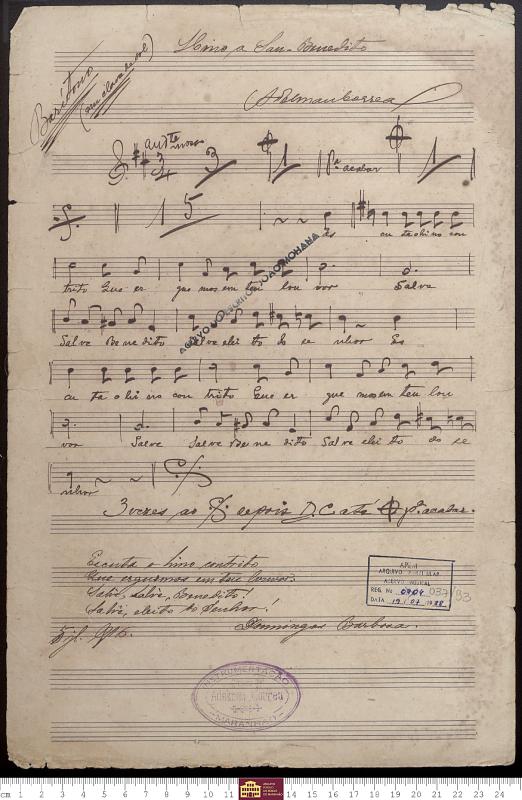 Hino a San-Benedito
Barítono
(em clave de sol)
Adelman Correa
3/4 3 1 pª acabar 1
1 5
Es cu ta o hi no con
trito Que er gue mos em teu lou vor Salve
Salve Be ne dito Salve elei to do se nhor Es
cu ta o hi no con trito Que er gue mos em teu lou
vor Salve Salve Be ne dito Salve elei to do se
nhor
3 vezes ao depois D.C até pª acabar.
Escuta o hino contrito
Que erguemos em teu louvor:
Salve, salve, Benedito!
Salve, eleito do Senhor!
Domingos Barbosa.
APEM
ARQUIVO PARTICULAR
ACERVO MUSICAL
REG. Nº 0704 037/93
DATA 19/07/1988
INSTRUMENTAÇÃO
Adelman Corrêa
MARANHÃO
ACERVO DO ESCRITOR JOÃO MOHANA
cm 1 2 3 4 5 6 7 8 9 10 11 12 13 14 15 16 17 18 19 20 21 22 23 24